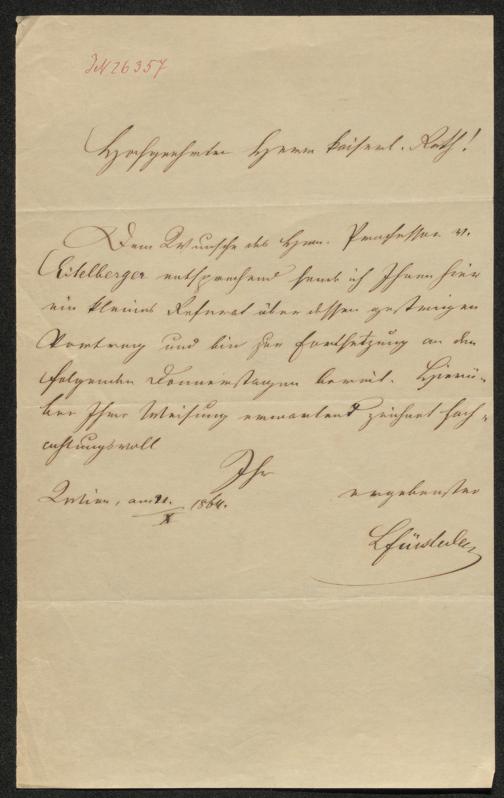 IN 26357
Hochgeehrter Herr kaiserl. Rath!
Dem Wunsche des Hrn. Professor v.
Eitelberger entsprechend sende ich Ihnen hier
ein kleines Referat über dessen gestrigen
Vortrag und bin zur Fortsetzung an den
folgenden Donnerstagen bereit. Hierü-
ber Ihre Weisung erwartend zeichnet hoch-
achtungsvoll
Ihr
Wien, am 21. / X 1864.
ergebenster